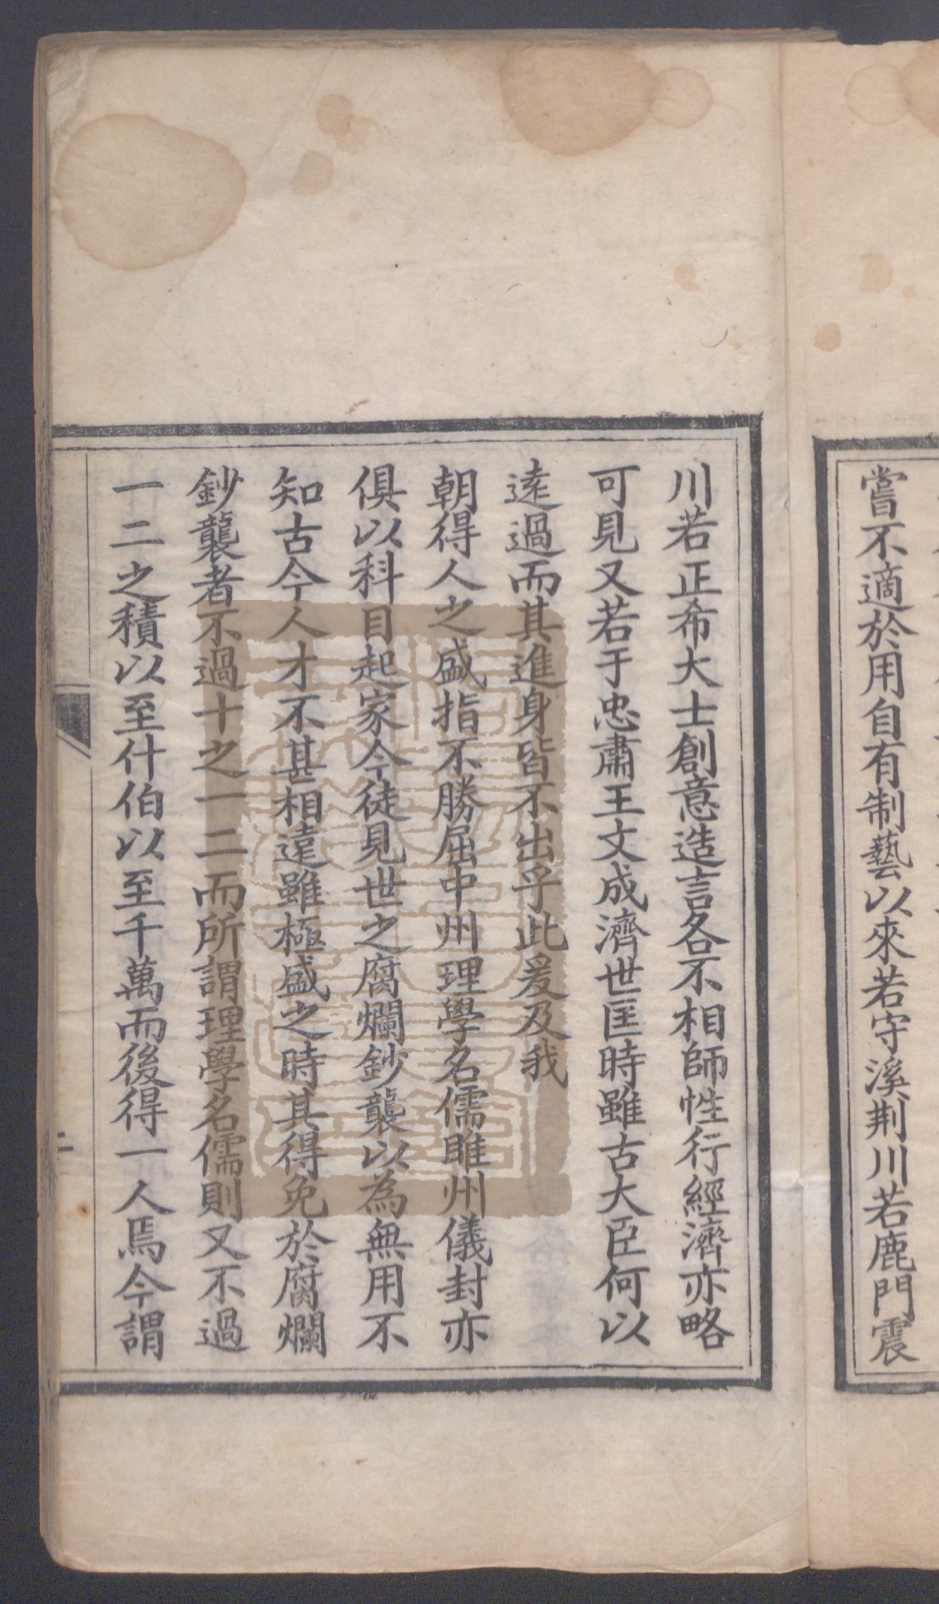 嘗不適於用自有制藝以來若守溪荆川若鹿門震
川若正希大士創意造言各不相師性行經濟亦略
可見又若于忠肅王文成濟世匡時雖古大臣何以
遠過而其進身皆不出乎此爰及我
朝得人之盛指不勝屈中州理學名儒睢州儀封亦
俱以科目起家今徒見世之腐爛鈔襲以為無用不
知古今人才不甚相遠雖極盛之時其得免於腐爛
鈔襲者不過十之一二而所謂理學名儒則又不過
一二之積以至什伯以至千萬而後得一人焉今謂